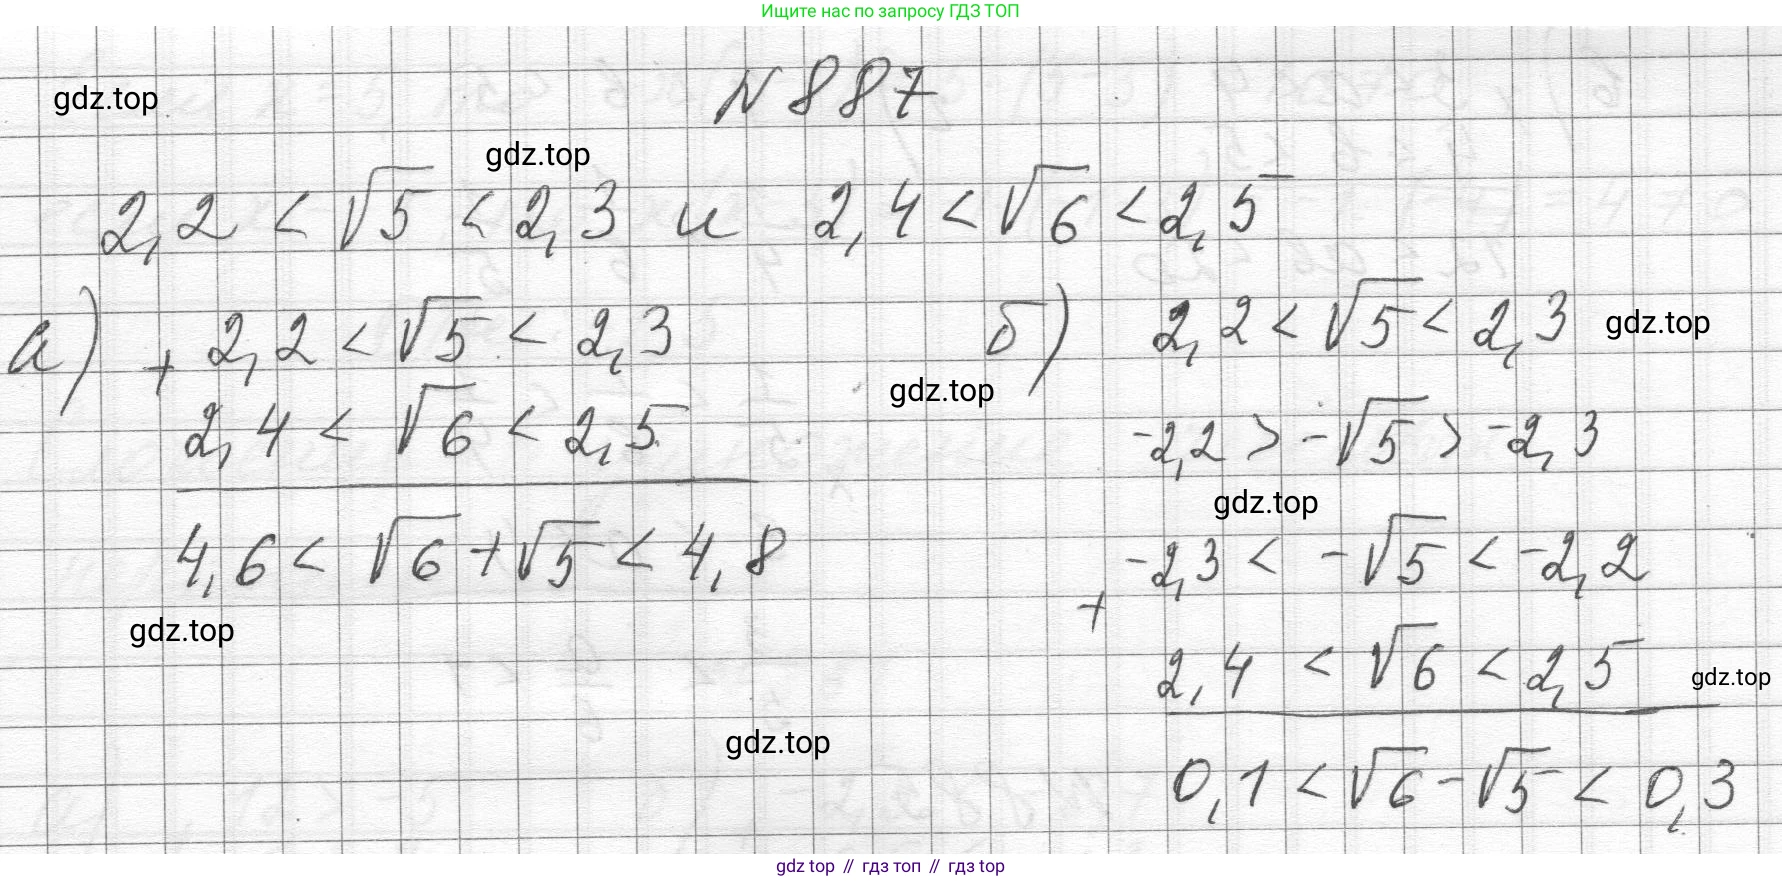 Ищите нас по запросу ГДЗ ТОП
N 887
gdz.top
gdz.top
2,2 < √5 < 2,3 и 2,4 < √6 < 2,5
а) + 2,2 < √5 < 2,3
2,4 < √6 < 2,5
4,6 < √6 + √5 < 4,8
gdz.top
gdz.top
б) 2,2 < √5 < 2,3
gdz.top
-2,2 > -√5 > -2,3
gdz.top
-2,3 < -√5 < -2,2
+
2,4 < √6 < 2,5
gdz.top
0,1 < √6 - √5 < 0,3
gdz.top
gdz top // гдз топ // gdz top